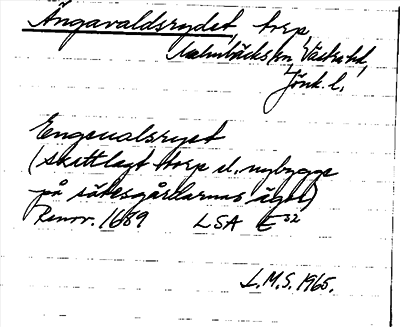 Ängavaldsrydet, torp,
Malmbäcks sn, Västra hd,
Jönk. l.
Engeualsryet
(skattlagt torp el. nybygge
på sätesgårdarnas ägor)
Renov. 1689 LSA E32
L.M.S. 1965.